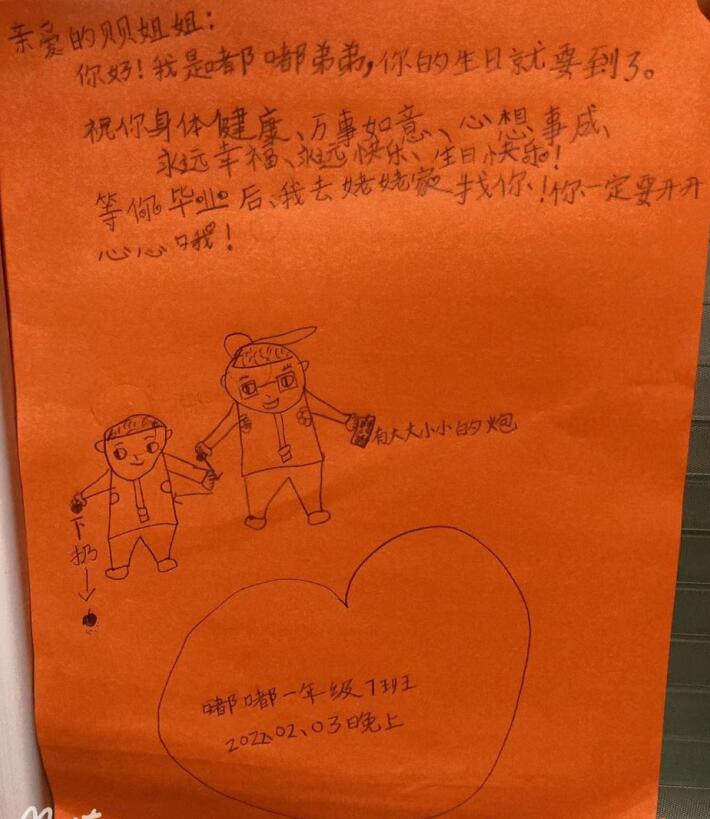 亲爱的贝贝姐姐：
你好！我是嘟嘟弟弟，你的生日就要到了。
祝你身体健康、万事如意、心想事成、
永远幸福、永远快乐、生日快乐！
等你毕业后、我去姥姥家找你！你一定要开开
心心哦！
有大大小小的炮
下扔
嘟嘟一年级7班
2022.02.03晚上